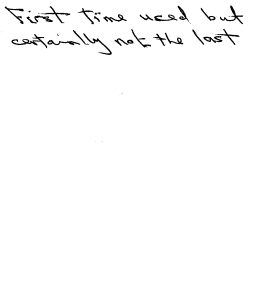 First time used but
certainly not the last